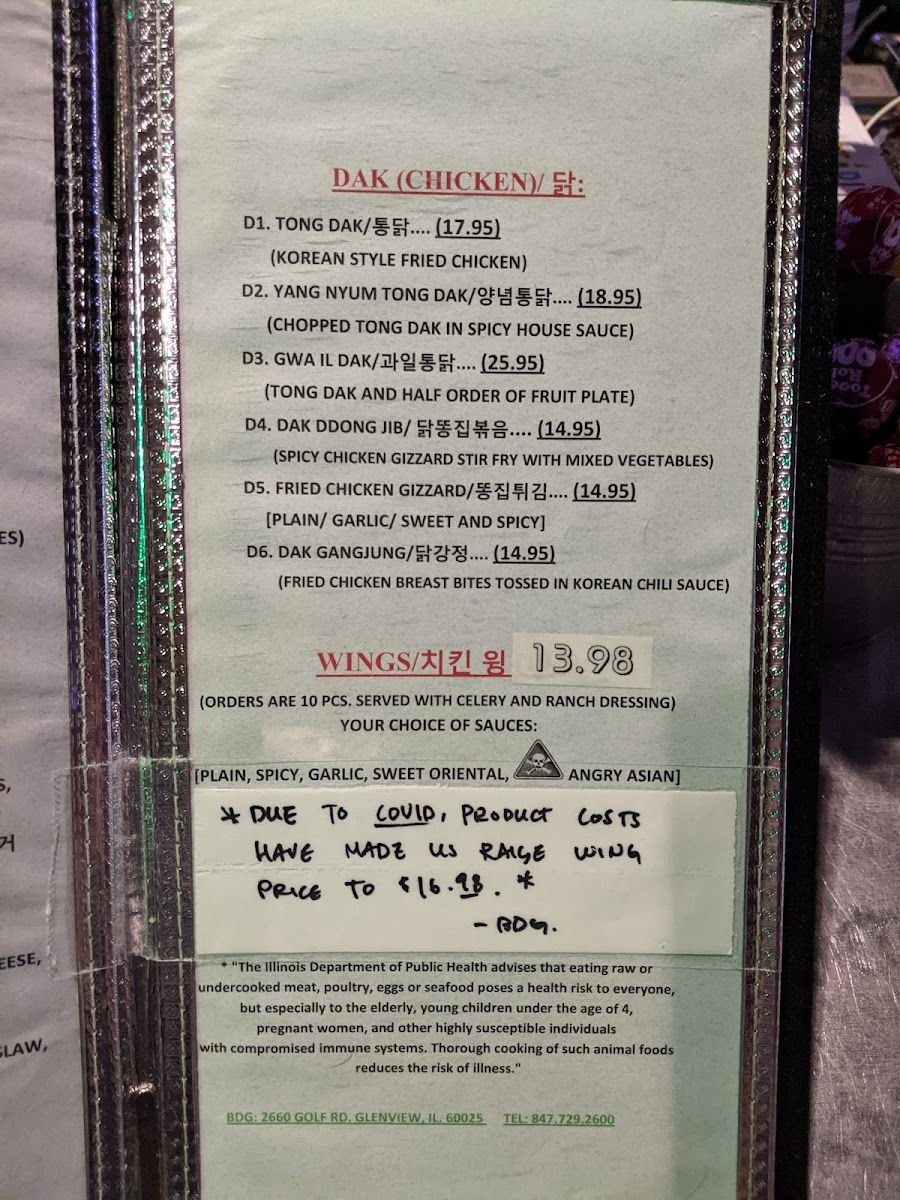 DAK (CHICKEN)/ 닭:
D1. TONG DAK/통닭.... (17.95)
(KOREAN STYLE FRIED CHICKEN)
D2. YANG NYUM TONG DAK/양념통닭.... (18.95)
(CHOPPED TONG DAK IN SPICY HOUSE SAUCE)
D3. GWA IL DAK/과일통닭.... (25.95)
(TONG DAK AND HALF ORDER OF FRUIT PLATE)
D4. DAK DDONG JIB/ 닭똥집볶음.... (14.95)
(SPICY CHICKEN GIZZARD STIR FRY WITH MIXED VEGETABLES)
D5. FRIED CHICKEN GIZZARD/똥집튀김.... (14.95)
[PLAIN/ GARLIC/ SWEET AND SPICY]
D6. DAK GANGJUNG/닭강정.... (14.95)
(FRIED CHICKEN BREAST BITES TOSSED IN KOREAN CHILI SAUCE)
WINGS/치킨 윙 13.98
(ORDERS ARE 10 PCS. SERVED WITH CELERY AND RANCH DRESSING)
YOUR CHOICE OF SAUCES:
[PLAIN, SPICY, GARLIC, SWEET ORIENTAL, ANGRY ASIAN]
* DUE TO COVID, PRODUCT COSTS
HAVE MADE US RAISE WING
PRICE TO $16.98. *
- BDG.
* "The Illinois Department of Public Health advises that eating raw or
undercooked meat, poultry, eggs or seafood poses a health risk to everyone,
but especially to the elderly, young children under the age of 4,
pregnant women, and other highly susceptible individuals
with compromised immune systems. Thorough cooking of such animal foods
reduces the risk of illness."
BDG: 2660 GOLF RD. GLENVIEW, IL. 60025 TEL: 847.729.2600
ES)
S,
거
EESE,
SLAW,
Tootsie